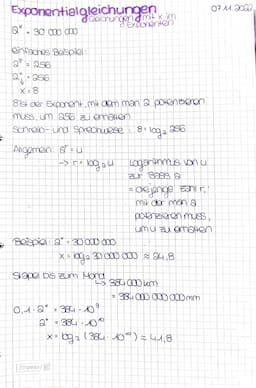 Exponentialgleichungen 07.11.2022
Gleichungen mit x im
Exponenten
2ˣ = 30 000 000
einfaches Beispiel:
2ˣ = 256
2⁸ = 256
x = 8
8 ist der Exponent, mit dem man 2 potenzieren
muss, um 256 zu erhalten
Schreib- und Sprechweise: 8 = log₂ 256
Allgemein: aʳ = u
→ r = logₐ u Logarithmus von u
zur Basis a
= diejenige Zahl r,
mit der man a
potenzieren muss,
um u zu erhalten
Beispiel: 2ˣ = 30 000 000
x = log₂ 30 000 000 ≈ 24,8
Stapel bis zum Mond
↳ 384 000 km
= 384 000 000 000 mm
0,1 · 2ˣ = 384 · 10⁹
2ˣ = 384 · 10¹⁰
x = log₂ (384 · 10¹⁰) ≈ 41,8